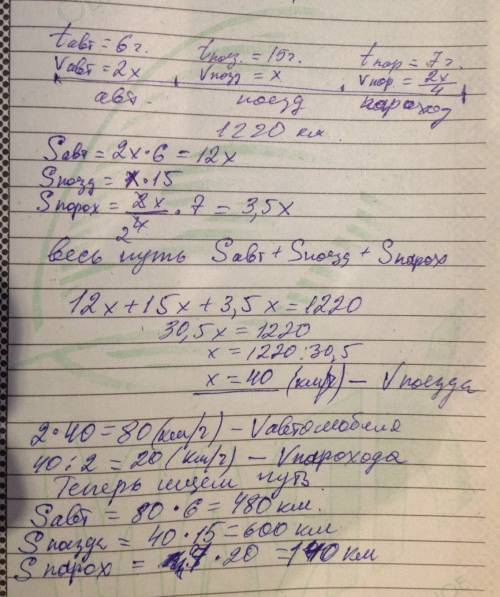 tавт = 6 ч. tпоезд. = 15 ч. tпар = 7 ч.
vавт = 2x vпоезд = x vпар. = 2x/4
авт. поезд пароход
1220 км.
Sавт = 2x · 6 = 12x
Sпоезд = x · 15
Sпорох = 2x/4 · 7 = 3,5x
2
весь путь Sавт + Sпоезд + Sпарох
12x + 15x + 3,5x = 1220
30,5x = 1220
x = 1220 : 30,5
x = 40 (км/ч) – Vпоезда
2 · 40 = 80 (км/ч) – Vавтомобиля
40 : 2 = 20 (км/ч) – Vпарохода
Теперь ищем путь.
Sавт = 80 · 6 = 480 км.
Sпоезда = 40 · 15 = 600 км
Sпарох = 7 · 20 = 140 км